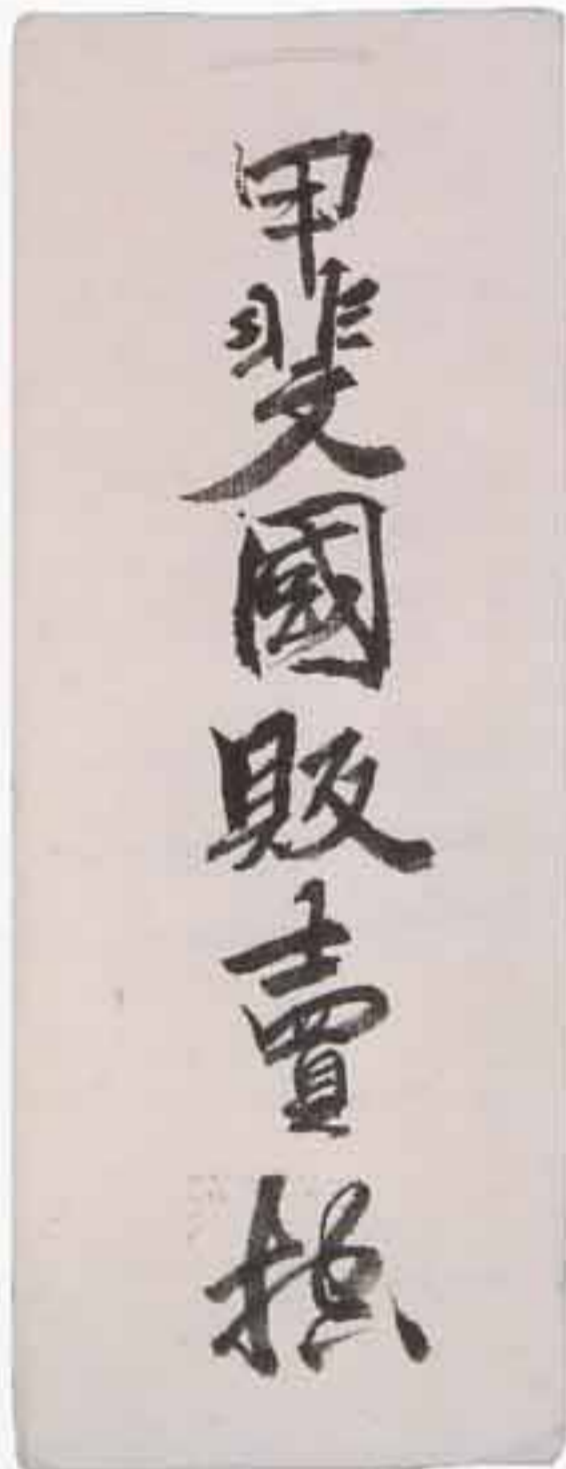 甲斐國販賣控